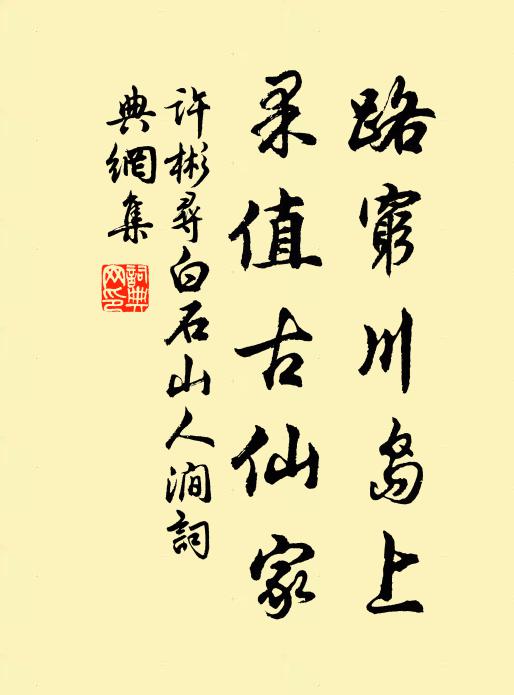 路窮川島上
果值古仙家
許彬尋白石山人澗詞
典網集
詞典
网印